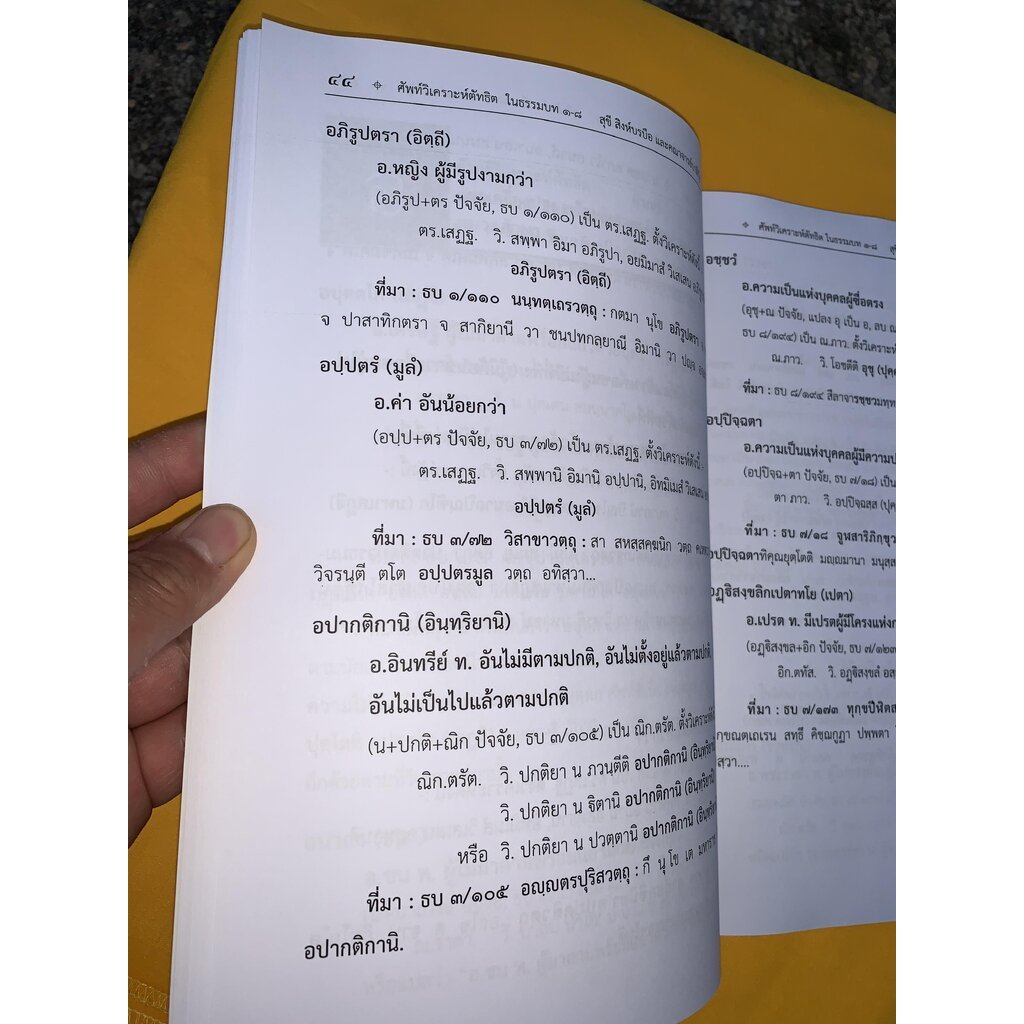 ๔๔ ⌖ ศัพท์วิเคราะห์ตัทธิต ในธรรมบท ๑-๘ สุชี สิงห์บรบือ และคณาจารย์
อภิรูปตรา (อิตฺถี)
อ.หญิง ผู้มีรูปงามกว่า
(อภิรูป+ตร ปัจจัย, ธบ ๑/๑๑๐) เป็น ตร.เสฏฐ. ตั้งวิเคราะห์ดังนี้
ตร.เสฏฐ. วิ. สพฺพา อิมา อภิรูปา, อยมิมาสํ วิเสเสน
อภิรูปตรา (อิตฺถี)
ที่มา : ธบ ๑/๑๑๐ นนฺทตฺเถรวตฺถุ : กตมา นุโข อภิรูปตรา
จ ปาสาทิกตรา จ สากิยานี วา ชนปทกลฺยาณี อิมานิ วา ปญฺจ
อปฺปตรํ (มูลํ)
อ.ค่า อันน้อยกว่า
(อปฺป+ตร ปัจจัย, ธบ ๓/๗๒) เป็น ตร.เสฏฐ. ตั้งวิเคราะห์ดังนี้
ตร.เสฏฐ. วิ. สพฺพานิ อิมานิ อปฺปานิ, อิทมิเมสํ วิเสเสน
อปฺปตรํ (มูลํ)
ที่มา : ธบ ๓/๗๒ วิสาขาวตฺถุ : สา สหสฺสคฺฆนิก วตฺถ
วิจรนฺตี ตโต อปฺปตรมูล วตฺถ อทิสฺวา...
อปากติกานิ (อินฺทฺริยานิ)
อ.อินทรีย์ ท. อันไม่มีตามปกติ, อันไม่ตั้งอยู่แล้วตามปกติ,
อันไม่เป็นไปแล้วตามปกติ
(น+ปกติ+ณิก ปัจจัย, ธบ ๓/๑๐๕) เป็น ณิก.ตรัต. ตั้งวิเคราะห์
ณิก.ตรัต. วิ. ปกติยา น ภวนฺตีติ อปากติกานิ (อินฺทฺริยานิ)
วิ. ปกติยา น ฐิตานิ อปากติกานิ (อินฺทฺริยานิ)
หรือ วิ. ปกติยา น ปวตฺตานิ อปากติกานิ (อินฺทฺริยานิ
ที่มา : ธบ ๓/๑๐๕ อญฺญตรปุริสวตฺถุ : กึ นุ โข เต
อปากติกานิ.
⌖ ศัพท์วิเคราะห์ตัทธิต ในธรรมบท ๑-๘
อชฺชวํ
อ.ความเป็นแห่งบุคคลผู้ซื่อตรง
(อุชุ+ณ ปัจจัย, แปลง อุ เป็น อ, ลบ ณ
ธบ ๘/๑๙๔) เป็น ณ.ภาว. ตั้งวิเคราะห์
ณ.ภาว. วิ. โอชตีติ อุชุ
ที่มา : ธบ ๘/๑๙๔
อปฺปิจฺฉตา
อ.ความเป็นแห่งบุคคลผู้มีความ
(อปฺปิจฺฉ+ตา ปัจจัย, ธบ ๗/๑๘) เป็น
ตา ภาว. วิ. อปฺปิจฺฉสฺส
ที่มา : ธบ ๗/๑๘
อปฺปิจฺฉตาทิคุณยุตฺโตติ มญฺญมานา
อฏฺฐิสงฺขลิกเปตาทโย (เปตา)
อ.เปรต ท. มีเปรตผู้มีโครงแห่ง
(อฏฺฐิสงฺขล+อิก ปัจจัย,
อิก.ตทัส. วิ. อฏฺฐิสงฺขลํ
ที่มา : ธบ ๗/๑๗๓
สทฺธึ คิชฺฌกูฏา ปพฺพตา